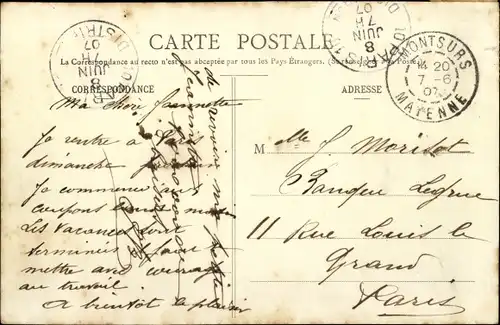 CARTE POSTALE
La Correspondance au recto n'est pas acceptée par tous les Pays Étrangers. (Se renseigner à la Poste.)
CORRESPONDANCE
ADRESSE
MONTSURS
14 20
7 - 6
07
MAYENNE
PARIS
DISTRI
8
JUIN
07
8
JUIN
7H
07
Ma chère Jeannette
Je rentre à
dimanche prochain
Je commence
coupons
Les vacances sont
terminées
mettre avec courage
au travail.
A bientôt le plaisir
de revoir ma petite
M lle J. Morisot
Banque Legrue
11 Rue Louis le
Grand
Paris